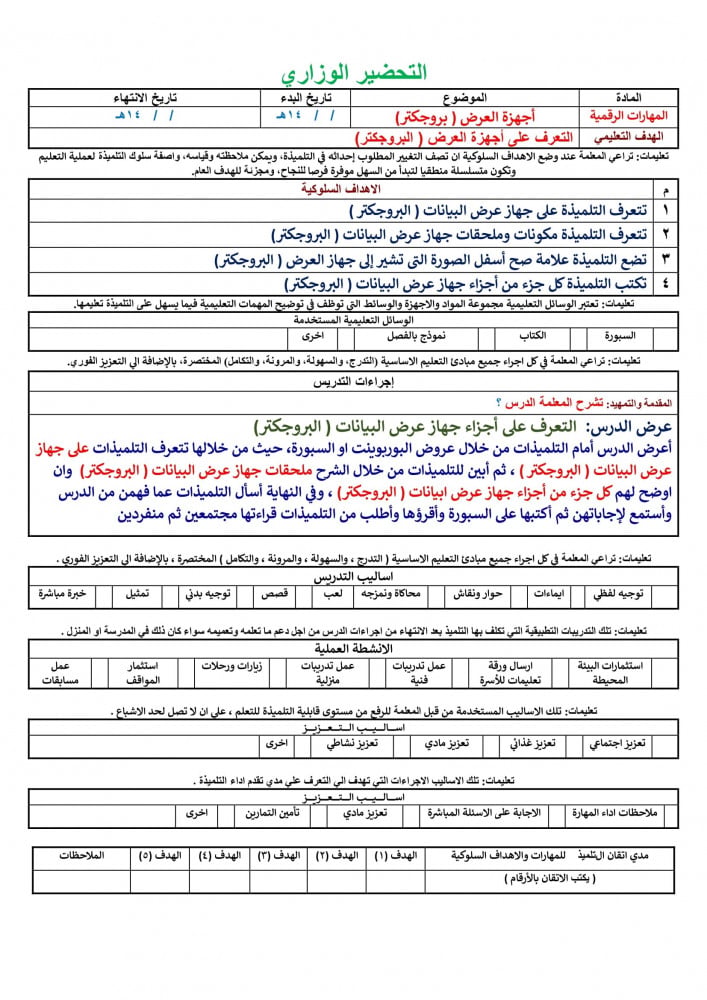 التحضير الوزاري
المادة الموضوع تاريخ البدء تاريخ الانتهاء
المهارات الرقمية أجهزة العرض ( بروجكتر) / / ١٤هـ / / ١٤هـ
الهدف التعليمي التعرف على أجهزة العرض ( البروجكتر)
تعليمات: تراعي المعلمة عند وضع الاهداف السلوكية ان تصف التغيير المطلوب إحداثه في التلميذة، ويمكن ملاحظته وقياسه، واصفة سلوك التلميذة لعملية التعليم
وتكون متسلسلة منطقيا لتبدأ من السهل موفرة فرصا للنجاح، ومجزئة للهدف العام.
م الاهداف السلوكية
١ تتعرف التلميذة على جهاز عرض البيانات ( البروجكتر )
٢ تتعرف التلميذة مكونات وملحقات جهاز عرض البيانات ( البروجكتر)
٣ تضع التلميذة علامة صح أسفل الصورة التى تشير إلى جهاز العرض ( البروجكتر)
٤ تكتب التلميذة كل جزء من أجزاء جهاز عرض البيانات ( البروجكتر)
تعليمات: تعتبر الوسائل التعليمية مجموعة المواد والاجهزة والوسائط التي توظف في توضيح المهمات التعليمية فيما يسهل على التلميذة تعليمها.
الوسائل التعليمية المستخدمة
السبورة الكتاب نموذج بالفصل اخرى
تعليمات: تراعي المعلمة في كل اجراء جميع مبادئ التعليم الاساسية (التدرج، والسهولة، والمرونة، والتكامل) المختصرة، بالإضافة الي التعزيز الفوري.
إجراءات التدريس
المقدمة والتمهيد: تشرح المعلمة الدرس ؟
عرض الدرس: التعرف على أجزاء جهاز عرض البيانات ( البروجكتر)
أعرض الدرس أمام التلميذات من خلال عروض البوربوينت او السبورة، حيث من خلالها تتعرف التلميذات على جهاز
عرض البيانات ( البروجكتر ) ، ثم أبين للتلميذات من خلال الشرح ملحقات جهاز عرض البيانات ( البروجكتر) وان
اوضح لهم كل جزء من أجزاء جهاز عرض ابيانات ( البروجكتر) ، وفي النهاية أسأل التلميذات عما فهمن من الدرس
وأستمع لإجاباتهن ثم أكتبها على السبورة وأقرؤها وأطلب من التلميذات قراءتها مجتمعين ثم منفردين
تعليمات: تراعي المعلمة في كل اجراء جميع مبادئ التعليم الاساسية ( التدرج ، والسهولة ، والمرونة ، والتكامل ) المختصرة ، بالإضافة الي التعزيز الفوري .
اساليب التدريس
توجيه لفظي ايماءات حوار ونقاش محاكاة ونمزجه لعب قصص توجيه بدني تمثيل خبرة مباشرة
تعليمات: تلك التدريبات التطبيقية التي تكلف بها التلميذ بعد الانتهاء من اجراءات الدرس من اجل دعم ما تعلمه وتعميمه سواء كان ذلك في المدرسة او المنزل .
الانشطة العملية
استثمارات البيئة المحيطة ارسال ورقة تعليمات للأسرة عمل تدريبات فنية عمل تدريبات منزلية زيارات ورحلات استثمار المواقف عمل مسابقات
تعليمات: تلك الاساليب المستخدمة من قبل المعلمة للرفع من مستوى قابلية التلميذة للتعلم ، علي ان لا تصل لحد الاشباع .
اساليب التعزيز
تعزيز اجتماعي تعزيز غذائي تعزيز مادي تعزيز نشاطي اخرى
تعليمات: تلك الاساليب الاجراءات التي تهدف الي التعرف علي مدي تقدم اداء التلميذة .
اساليب التعزيز
ملاحظات اداء المهارة الاجابة على الاسئلة المباشرة تعزيز مادي تأمين التمارين اخرى
مدي اتقان التلميذ للمهارات والاهداف السلوكية الهدف (١) الهدف (٢) الهدف (٣) الهدف (٤) الهدف (٥) الملاحظات
( يكتب الاتقان بالأرقام )